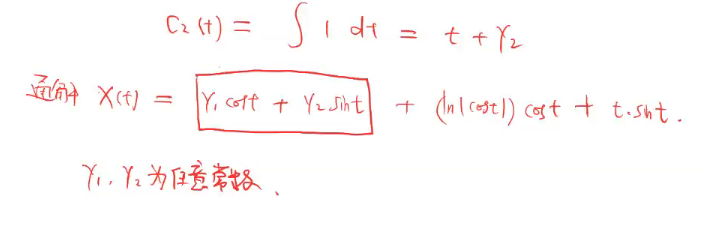 C₂(t) = ∫ 1 dt = t + γ₂
通解 X(t) = γ₁ cost + γ₂ sint + (ln|cost|) cost + t·sint.
γ₁, γ₂ 为任意常数.